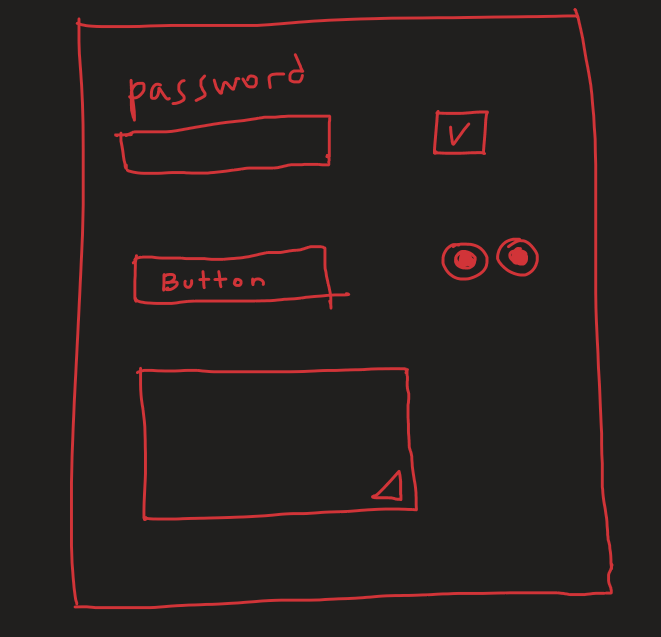 password
Button